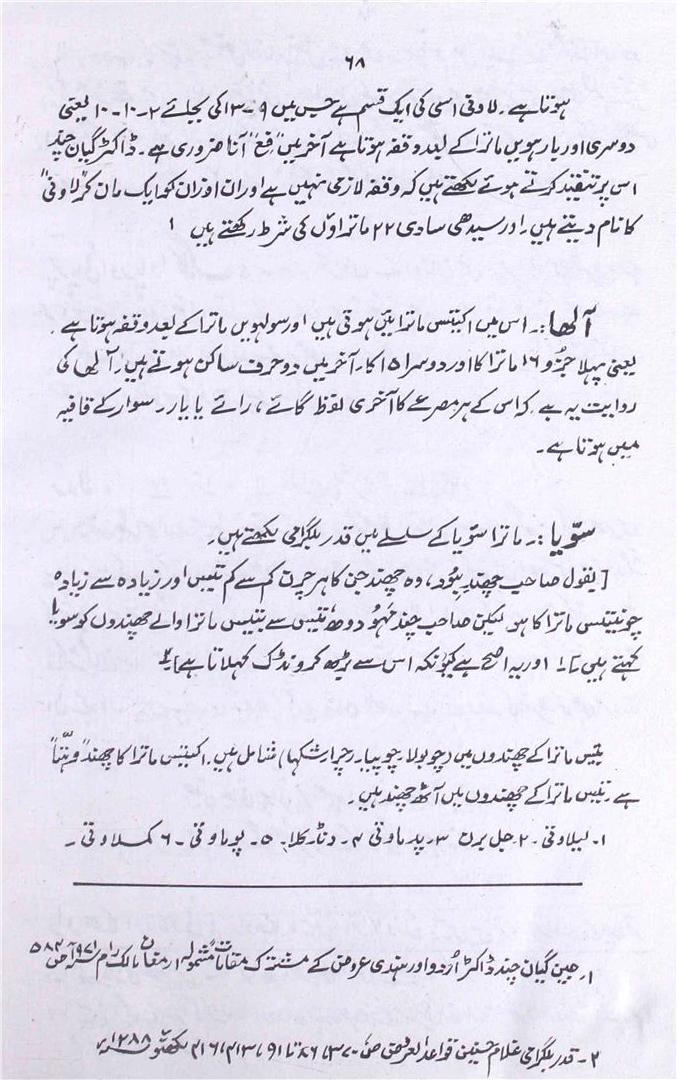 ۶۸
ہوتا ہے۔ لاوتی اسی کی ایک قسم ہے جس میں ۹-۱۳ کی بجائے ۲-۱۰-۱۰ یعنی
دوسری اور بارہویں ماترا کے بعد وقفہ ہوتا ہے آخر میں "فع" آنا ضروری ہے۔ ڈاکٹر گیان چند
اس پر تنقید کرتے ہوئے لکھتے ہیں کہ وقفہ لازمی نہیں ہے اور ان اوزان کو ایک مان کر "لاوتی"
کا نام دیتے ہیں۔ اور سیدھی سادی ۲۲ ماتراؤں کی شرط رکھتے ہیں ۱
آلھا:۔ اس میں اکتیس ماترائیں ہوتی ہیں اور سولہویں ماترا کے بعد وقفہ ہوتا ہے
یعنی پہلا جزو ۱۶ ماترا کا اور دوسرا ۱۵ کا۔ آخر میں دو حرف ساکن ہوتے ہیں۔ آلہی کی
روایت یہ ہے کہ اس کے ہر مصرعے کا آخری لفظ گائے، رائے یا یار۔ سوار کے قافیہ
میں ہوتا ہے۔
سوّیا:۔ ماترا سوّیا کے سلسلے میں قدر بلگرامی لکھتے ہیں۔
[بقول صاحب چھند بنود، وہ چھند جن کا ہر چرن کم سے کم تیئس اور زیادہ سے زیادہ
چونتیس ماترا کا ہو لیکن صاحب چند مہودودھ تیس سے بتیس ماترا والے چھندوں کو سویا
کہتے ہیں۔ اور یہ اصح ہے کیونکہ اس سے بڑھ کر ونڈک کہلاتا ہے] ۲
تیس ماترا کے چھندوں میں (چوبولا۔ چوپیا۔ رچرا شکہا) شامل ہیں۔ اکتیس ماترا کا چھند "
ہے۔ بتیس ماترا کے چھندوں میں آٹھ چھند ہیں۔
۱۔ لیلاوتی۔ ۲۔ جل ہرن ۳۔ پدماوتی ۴۔ دنڈکلا۔ ۵۔ پوماوتی۔ ۶ کملاوتی۔
۱۔ جین گیان چند ڈاکٹر اُردو اور ہندی عروض کے مشترک مقامات مشمولہ ارمغان مالک ام ۱۹۷۱ء ص ۵۸۲
۲۔ قدر بلگرامی غلام حسنین قواعد العروض ص لکھنؤ ۱۲۸۸ھ